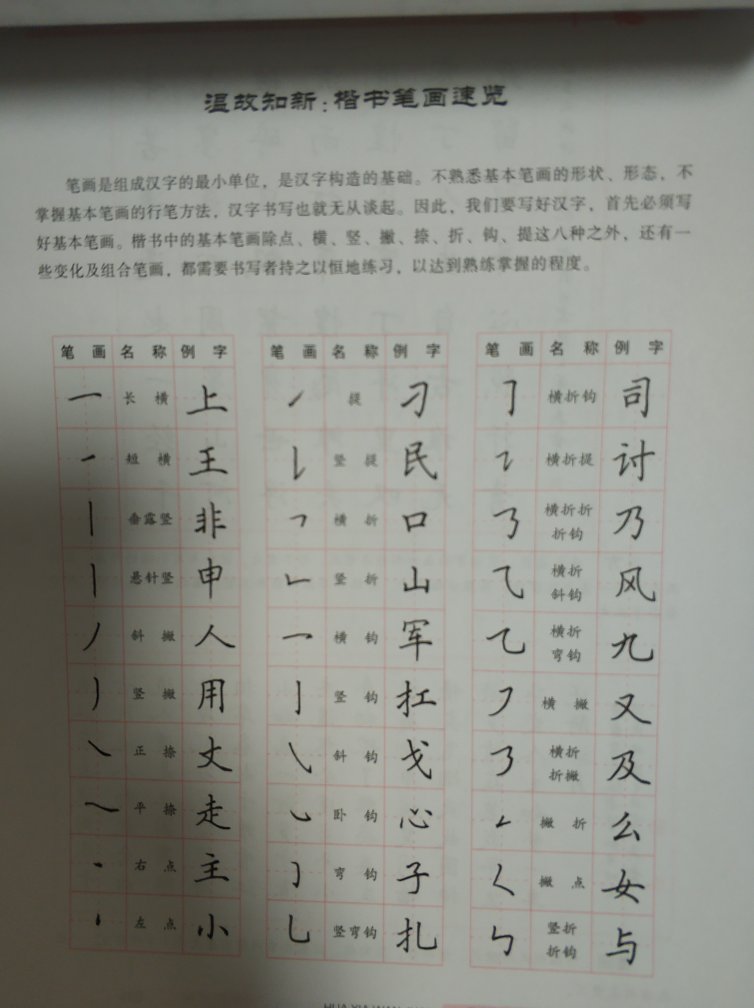 温故知新：楷书笔画速览
笔画是组成汉字的最小单位，是汉字构造的基础。不熟悉基本笔画的形状、形态，不
掌握基本笔画的行笔方法，汉字书写也就无从谈起。因此，我们要写好汉字，首先必须写
好基本笔画。楷书中的基本笔画除点、横、竖、撇、捺、折、钩、提这八种之外，还有一
些变化及组合笔画，都需要书写者持之以恒地练习，以达到熟练掌握的程度。
笔画 名称 例字
㇐ 长横 上
㇐ 短横 王
丨 垂露竖 非
丨 悬针竖 申
㇒ 斜撇 人
㇓ 竖撇 用
㇏ 正捺 丈
㇏ 平捺 走
㇔ 右点 主
㇔ 左点 小
笔画 名称 例字
㇀ 提 刁
㇙ 竖提 民
㇕ 横折 口
㇗ 竖折 山
㇖ 横钩 军
㇚ 竖钩 扛
㇂ 斜钩 戈
㇃ 卧钩 心
㇁ 弯钩 子
㇟ 竖弯钩 扎
笔画 名称 例字
㇆ 横折钩 司
㇊ 横折提 讨
㇡ 横折折折钩 乃
⺄ 横折斜钩 风
㇈ 横折弯钩 九
㇇ 横撇 又
㇋ 横折折撇 及
㇜ 撇折 么
㇛ 撇点 女
㇉ 竖折折钩 与